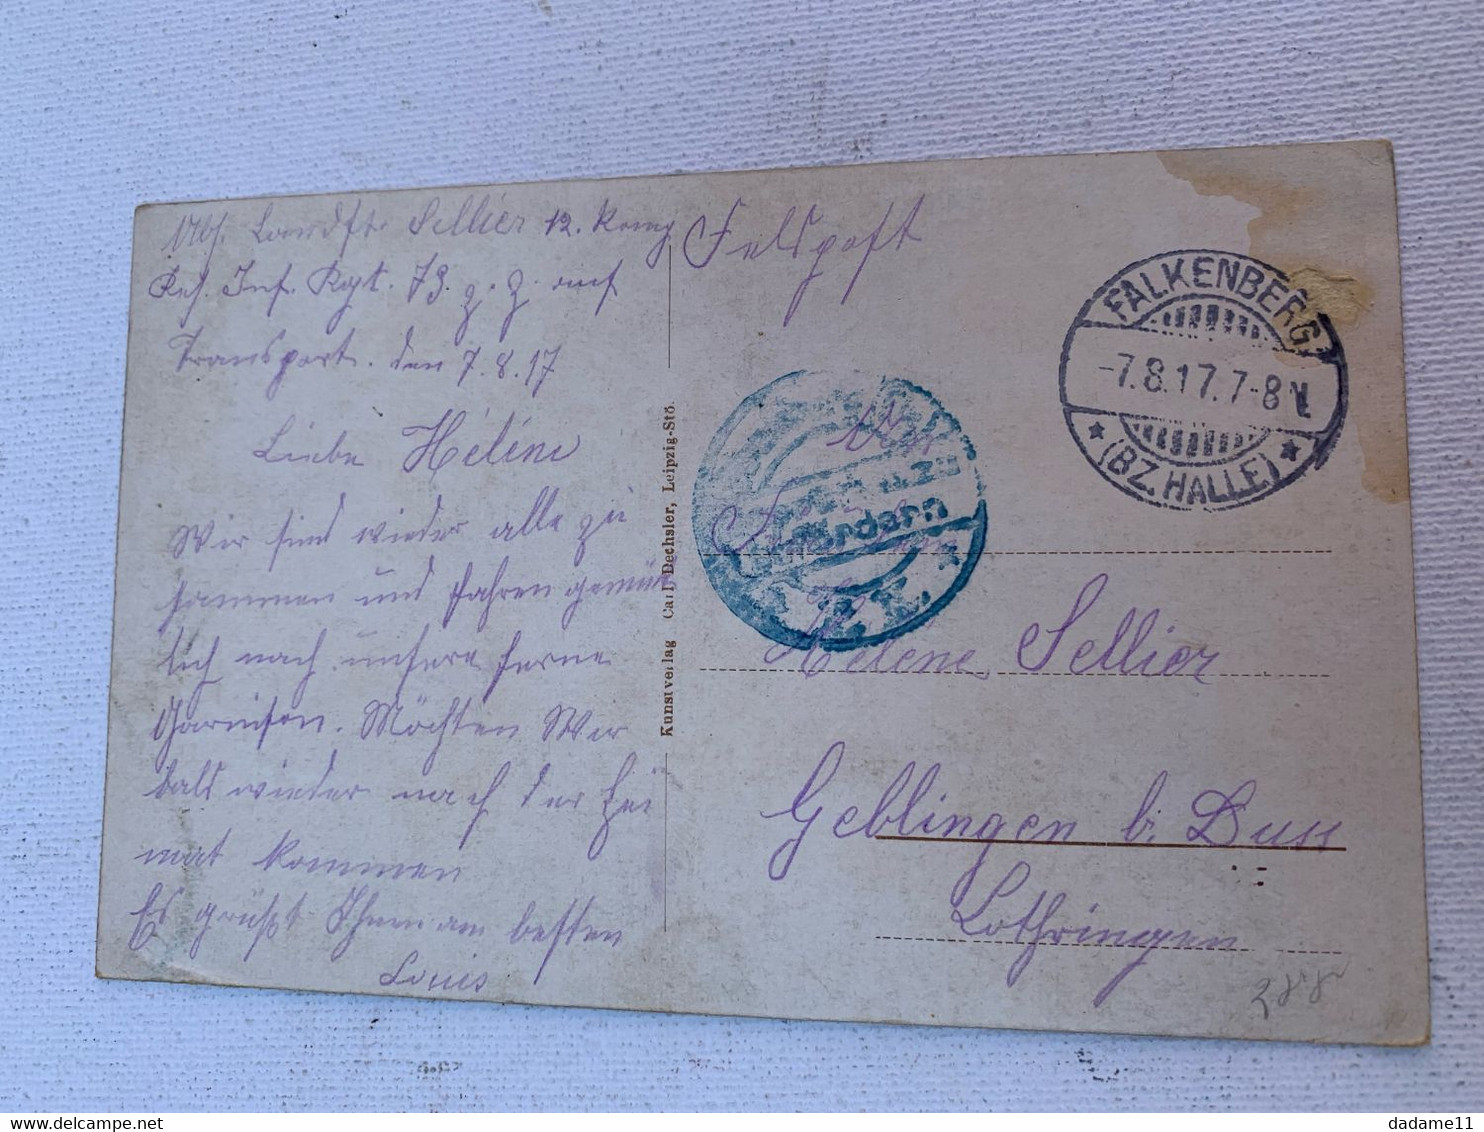 Abs. Landst. Sellier 12. Komp
Res. Inf. Rgt. 73. z. Z. auf
Transport. den 7.8.17
Liebe Hélène
Wir sind wieder alle zu
sammen und fahren gemüt
lich nach unsere ferne
Garnison. Möchten Wir
bald wieder nach der Hei
mat kommen
Es grüßt Ihnen am besten
Louis
Kunstverlag Carl Dechsler, Leipzig-Stö.
Feldpost
FALKENBERG
-7.8.17.7-8 N.
* (BZ. HALLE) *
Helene Sellier
Geblingen b. Duss
Lothringen
delcampe.net
dadame11